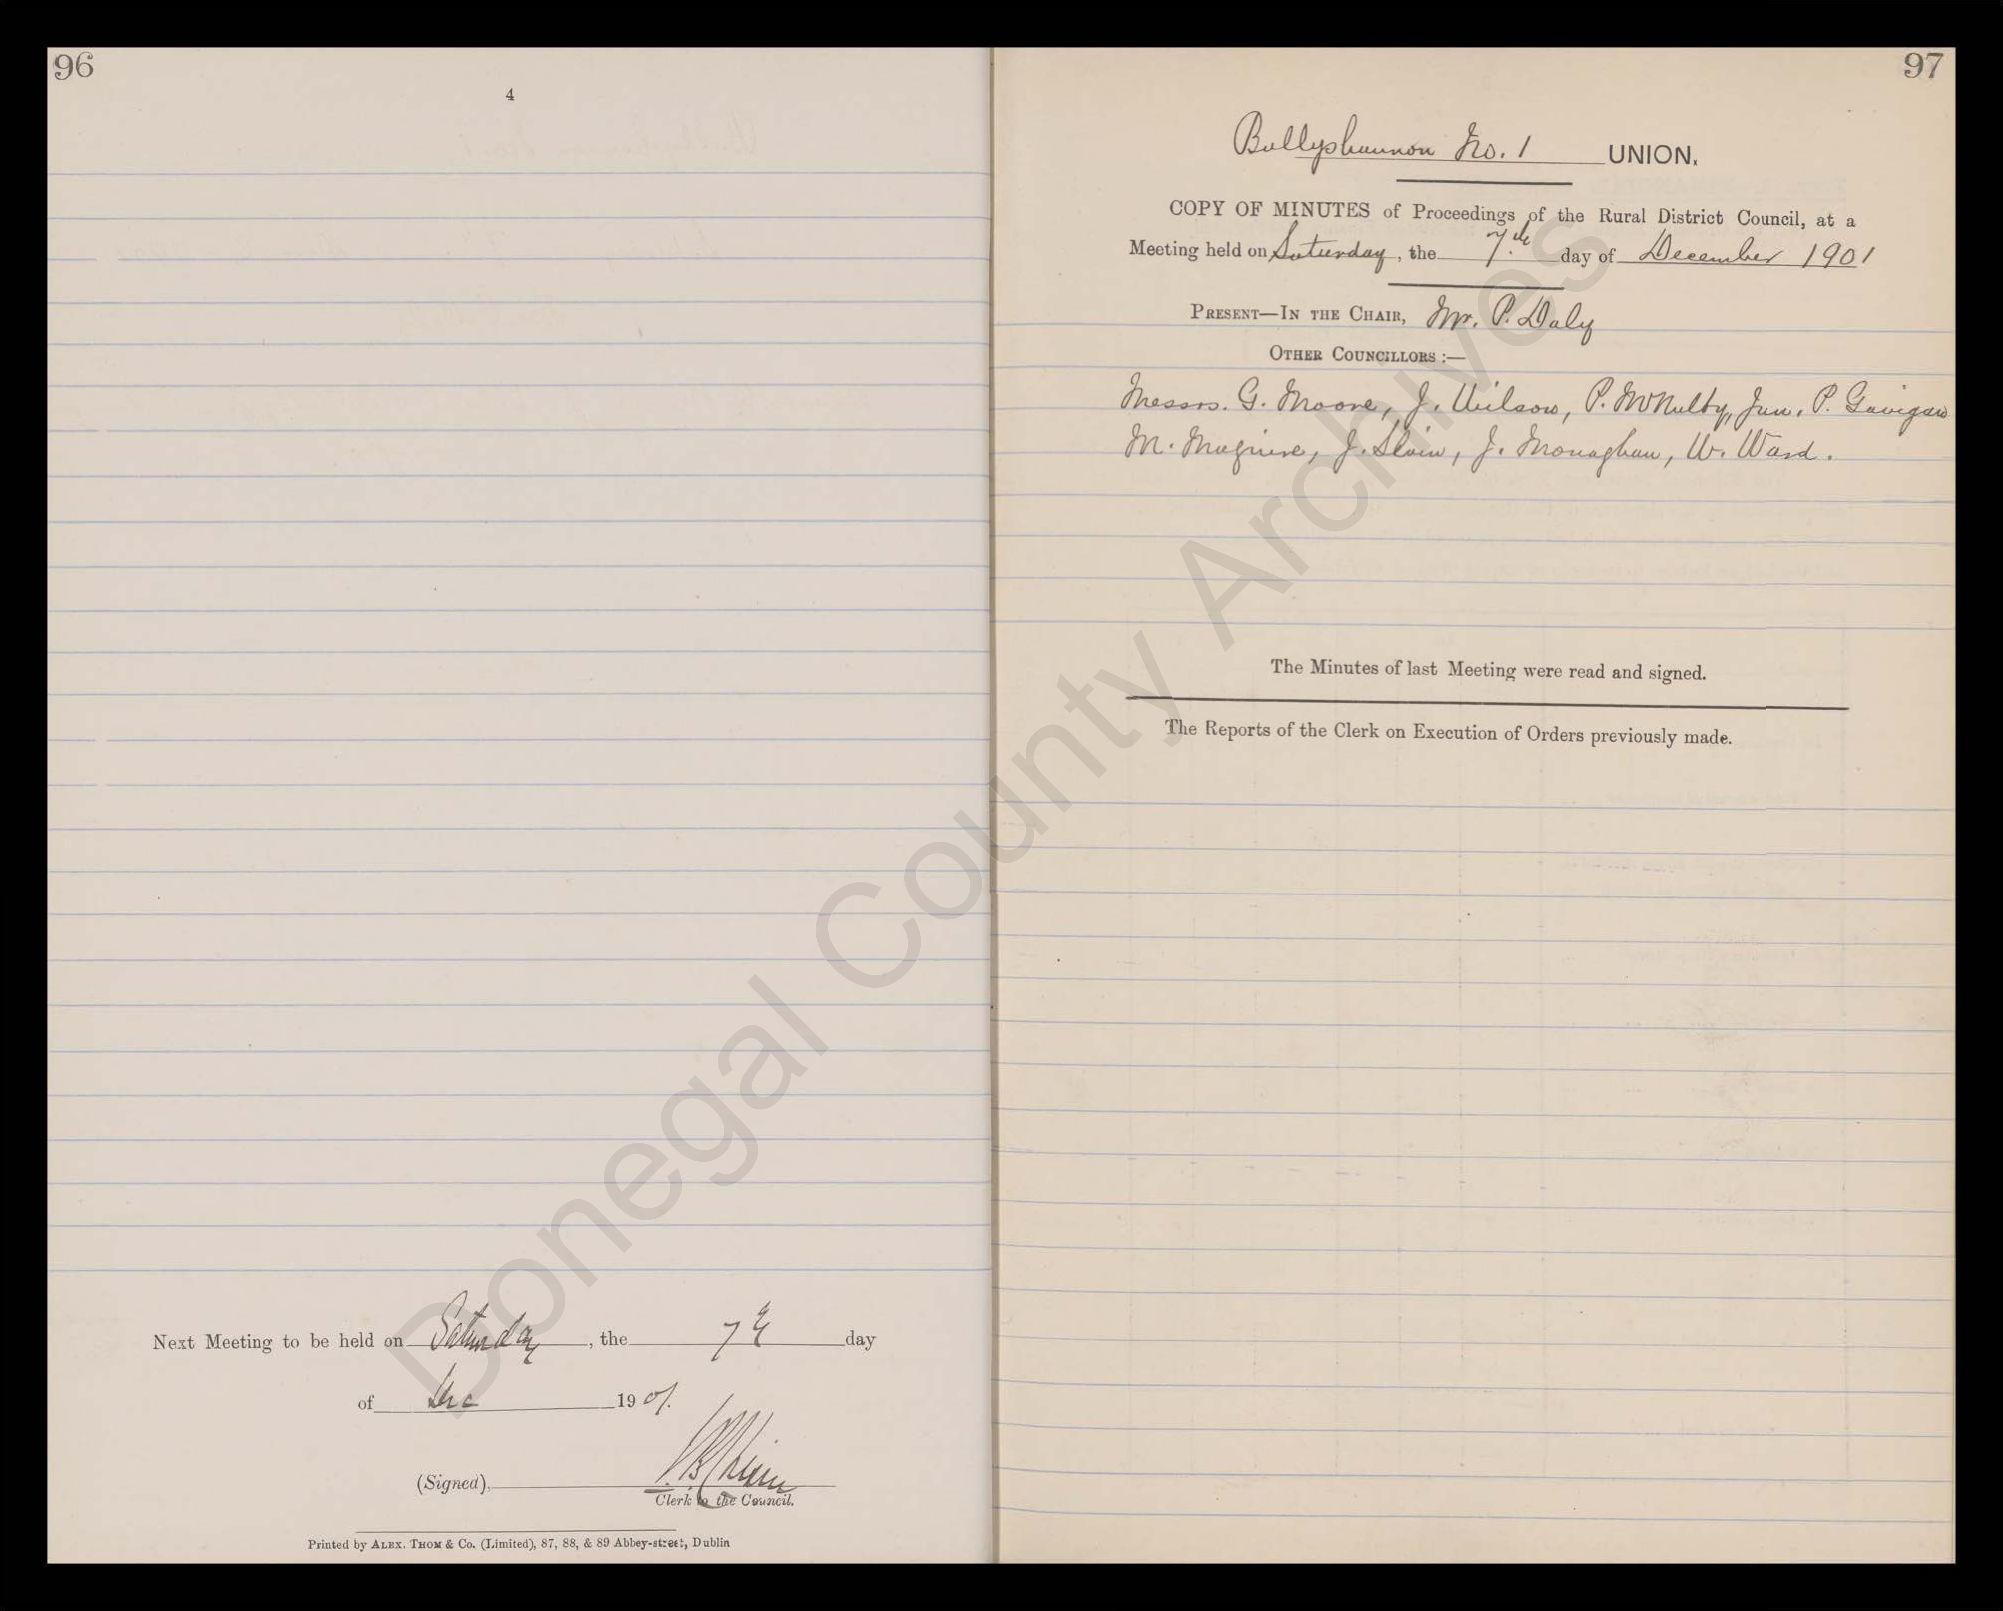 96
4
Next Meeting to be held on Saturday, the 7th day
of Dec 1901.
(Signed),
Clerk to the Council.
Printed by ALEX. THOM & Co. (Limited), 87, 88, & 89 Abbey-street, Dublin
97
Ballyshannon No. 1 UNION.
COPY OF MINUTES of Proceedings of the Rural District Council, at a
Meeting held on Saturday, the 7th. day of December 1901
PRESENT—IN THE CHAIR, Mr. P. Daly
OTHER COUNCILLORS :—
Messrs. G. Moore, J. Wilson, P. McNulty, Jun. P. Gavigan
M. Maguire, J. Slevin, J. Monaghan, W. Ward.
The Minutes of last Meeting were read and signed.
The Reports of the Clerk on Execution of Orders previously made.
Donegal County Archives